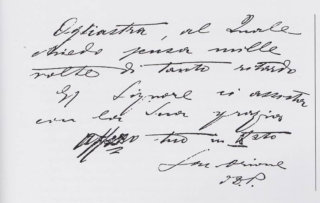 Ogliastra, al Quale
chiedo scusa mille
volte di tanto ritardo
Il Signore ci assista
con la Sua grazia
aff.mo tuo in
Don Orione
d. D. P.